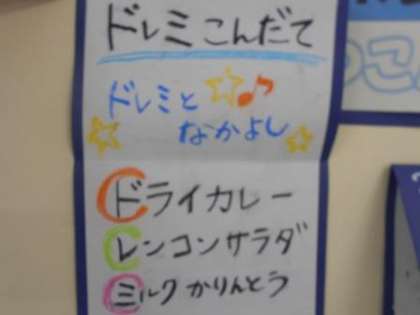 ドレミこんだて
ドレミと
なかよし
ドライカレー
レンコンサラダ
ミルクかりんとう